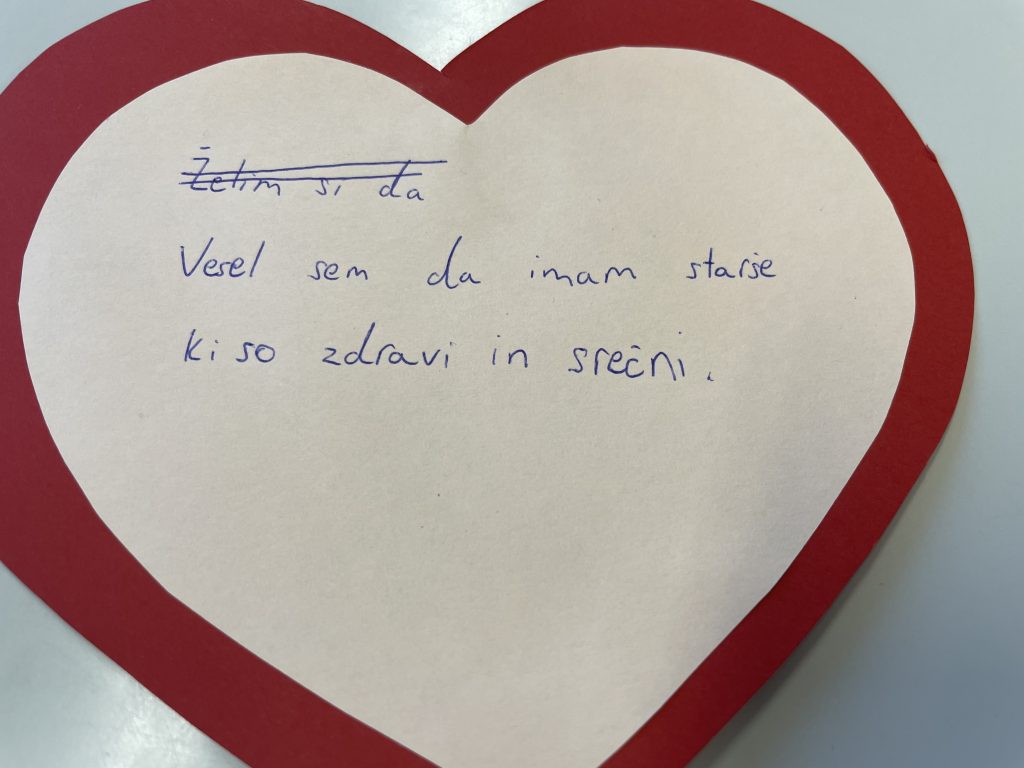 Želim si da
Vesel sem da imam starše
ki so zdravi in srečni.